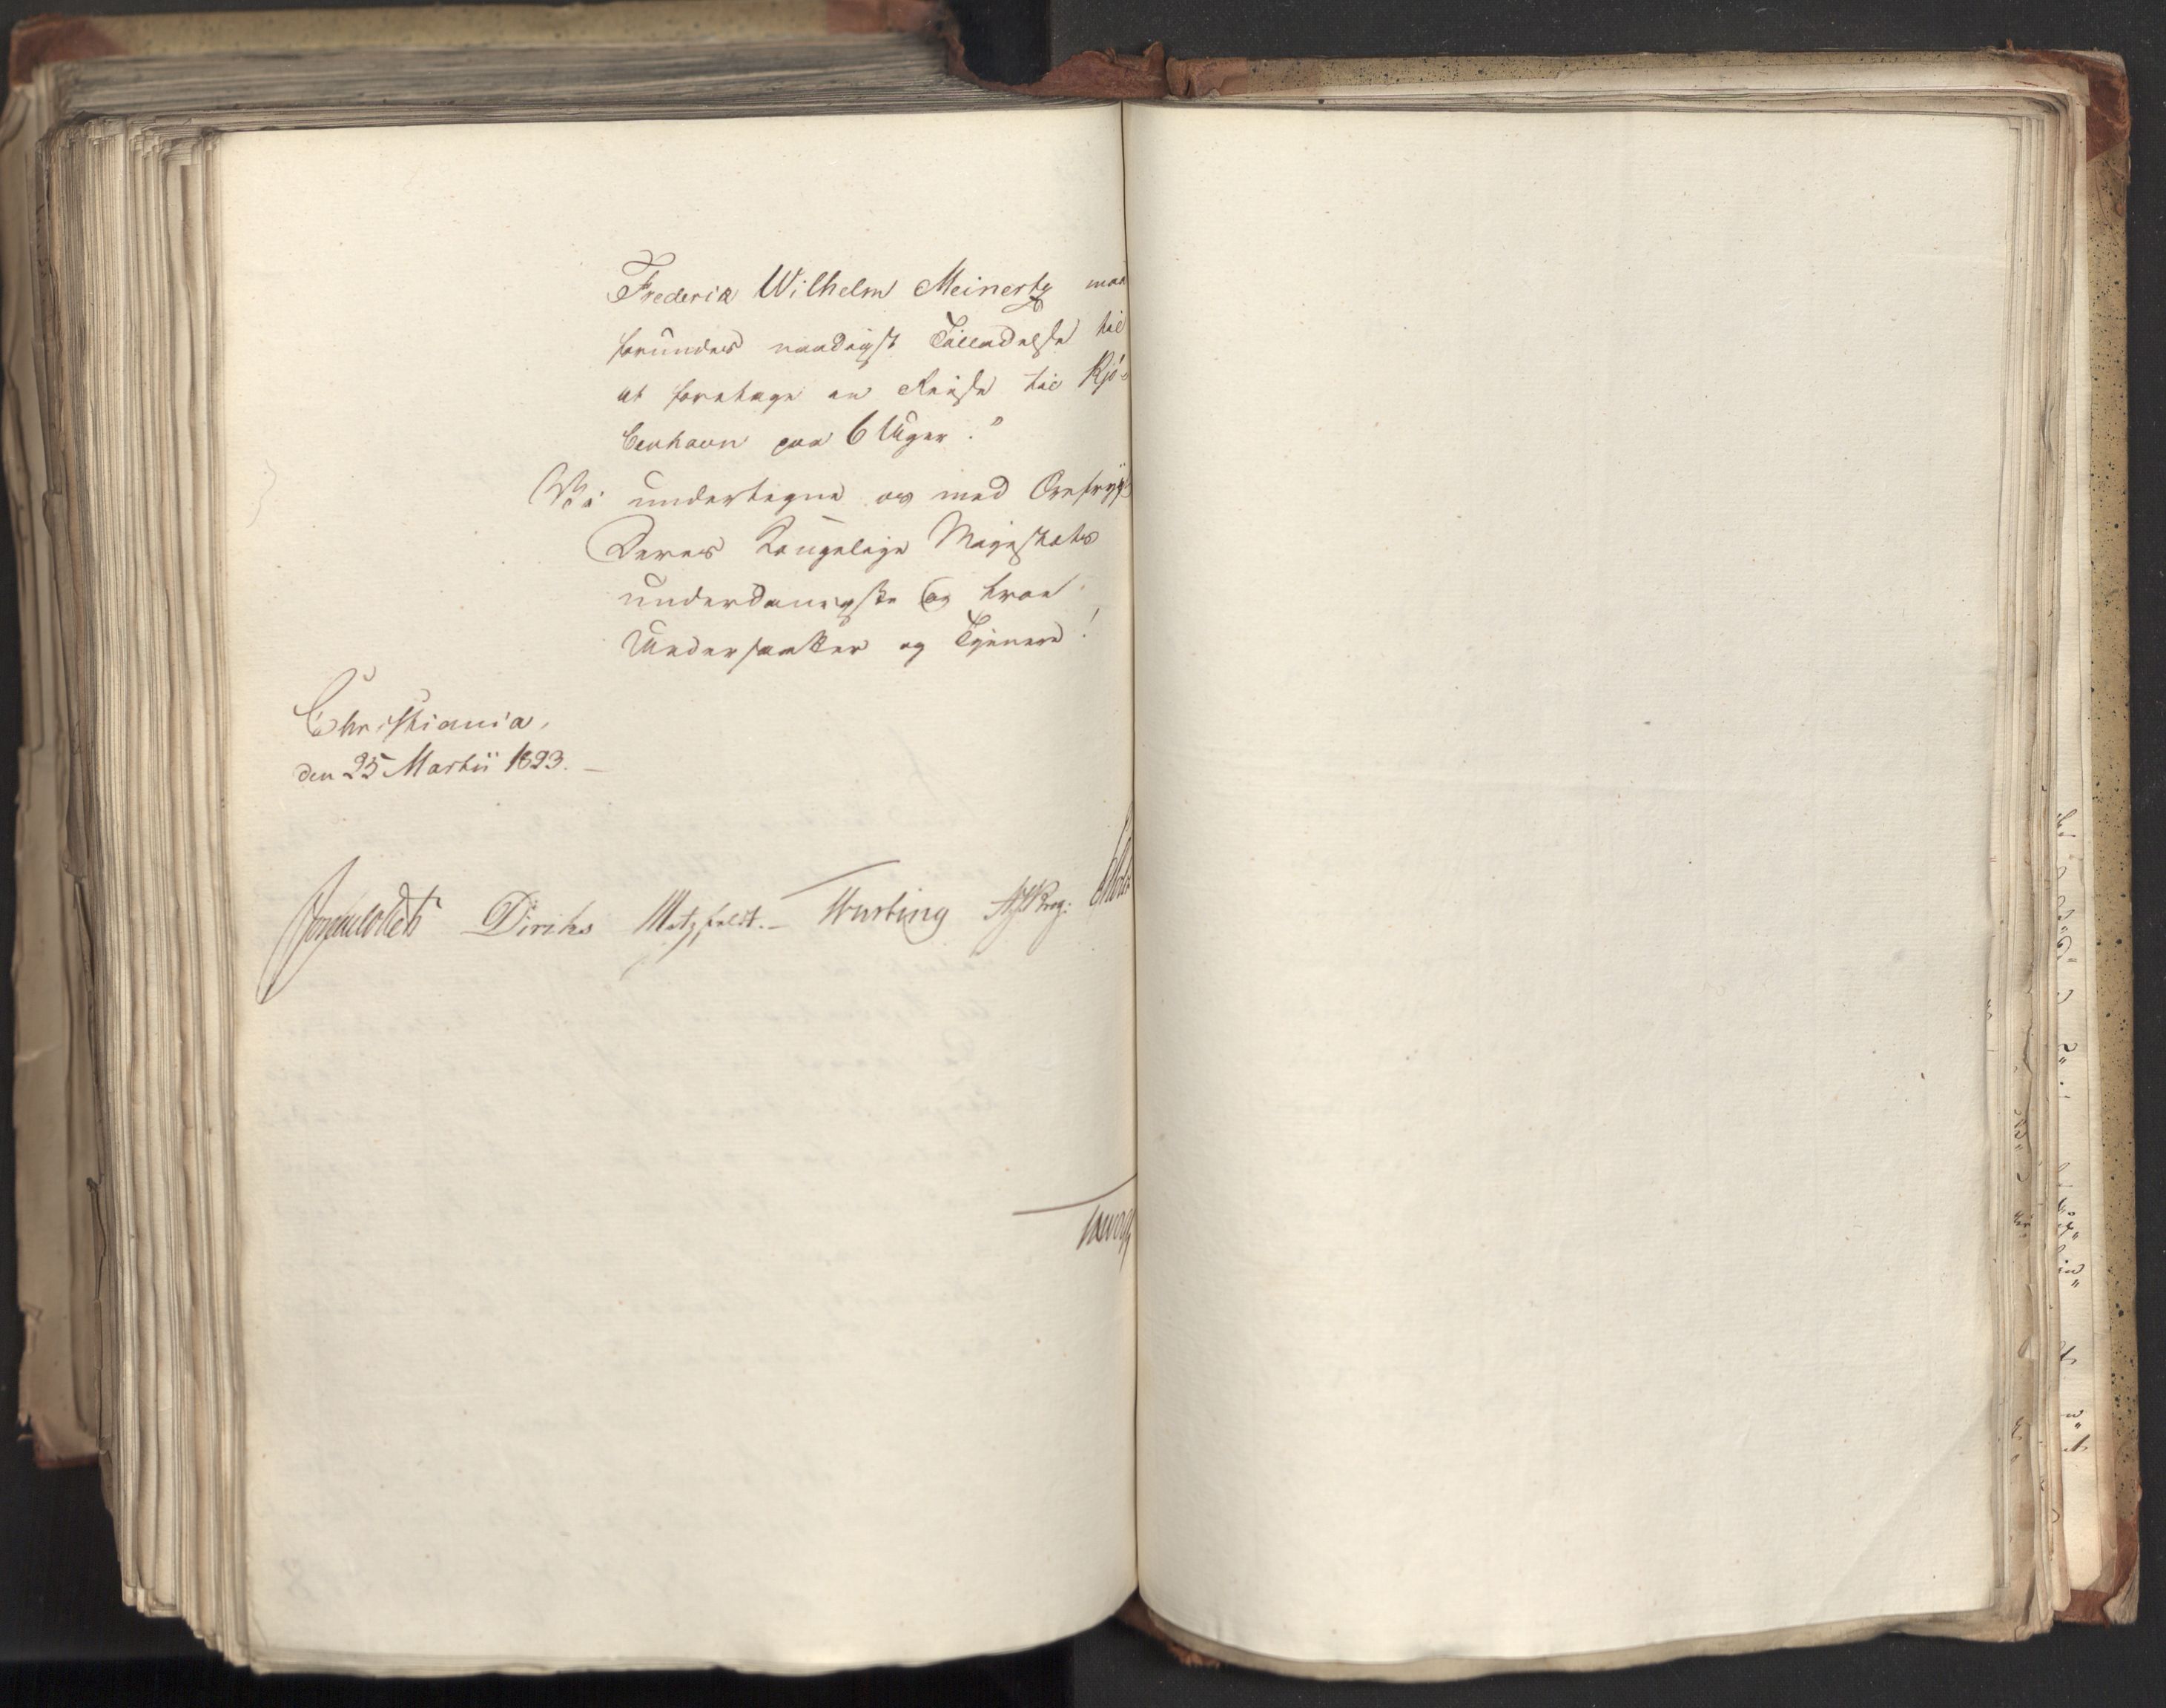 Frederik Wilhelm Meinertz maa
forundes naadigst Tilladelse til
at foretage en Reise til Kjö-
benhavn paa 6 Uger."
Vi undertegne os med Ærefrygt
Deres Kongelige Majestæts
underdanigste og troe
Undersaatter og Tjenere!
Christiania,
den 25 Martii 1823. —
Sommerhielm Diriks Motzfeldt. — Treschow Krog: Holst